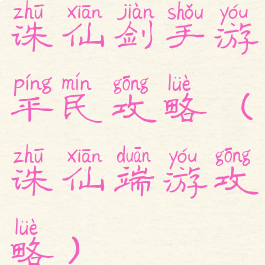 zhū xiān jiàn shǒu yóu
诛仙剑手游
píng mín gōng lüè
平民攻略（
zhū xiān duān yóu gōng
诛仙端游攻
lüè
略）